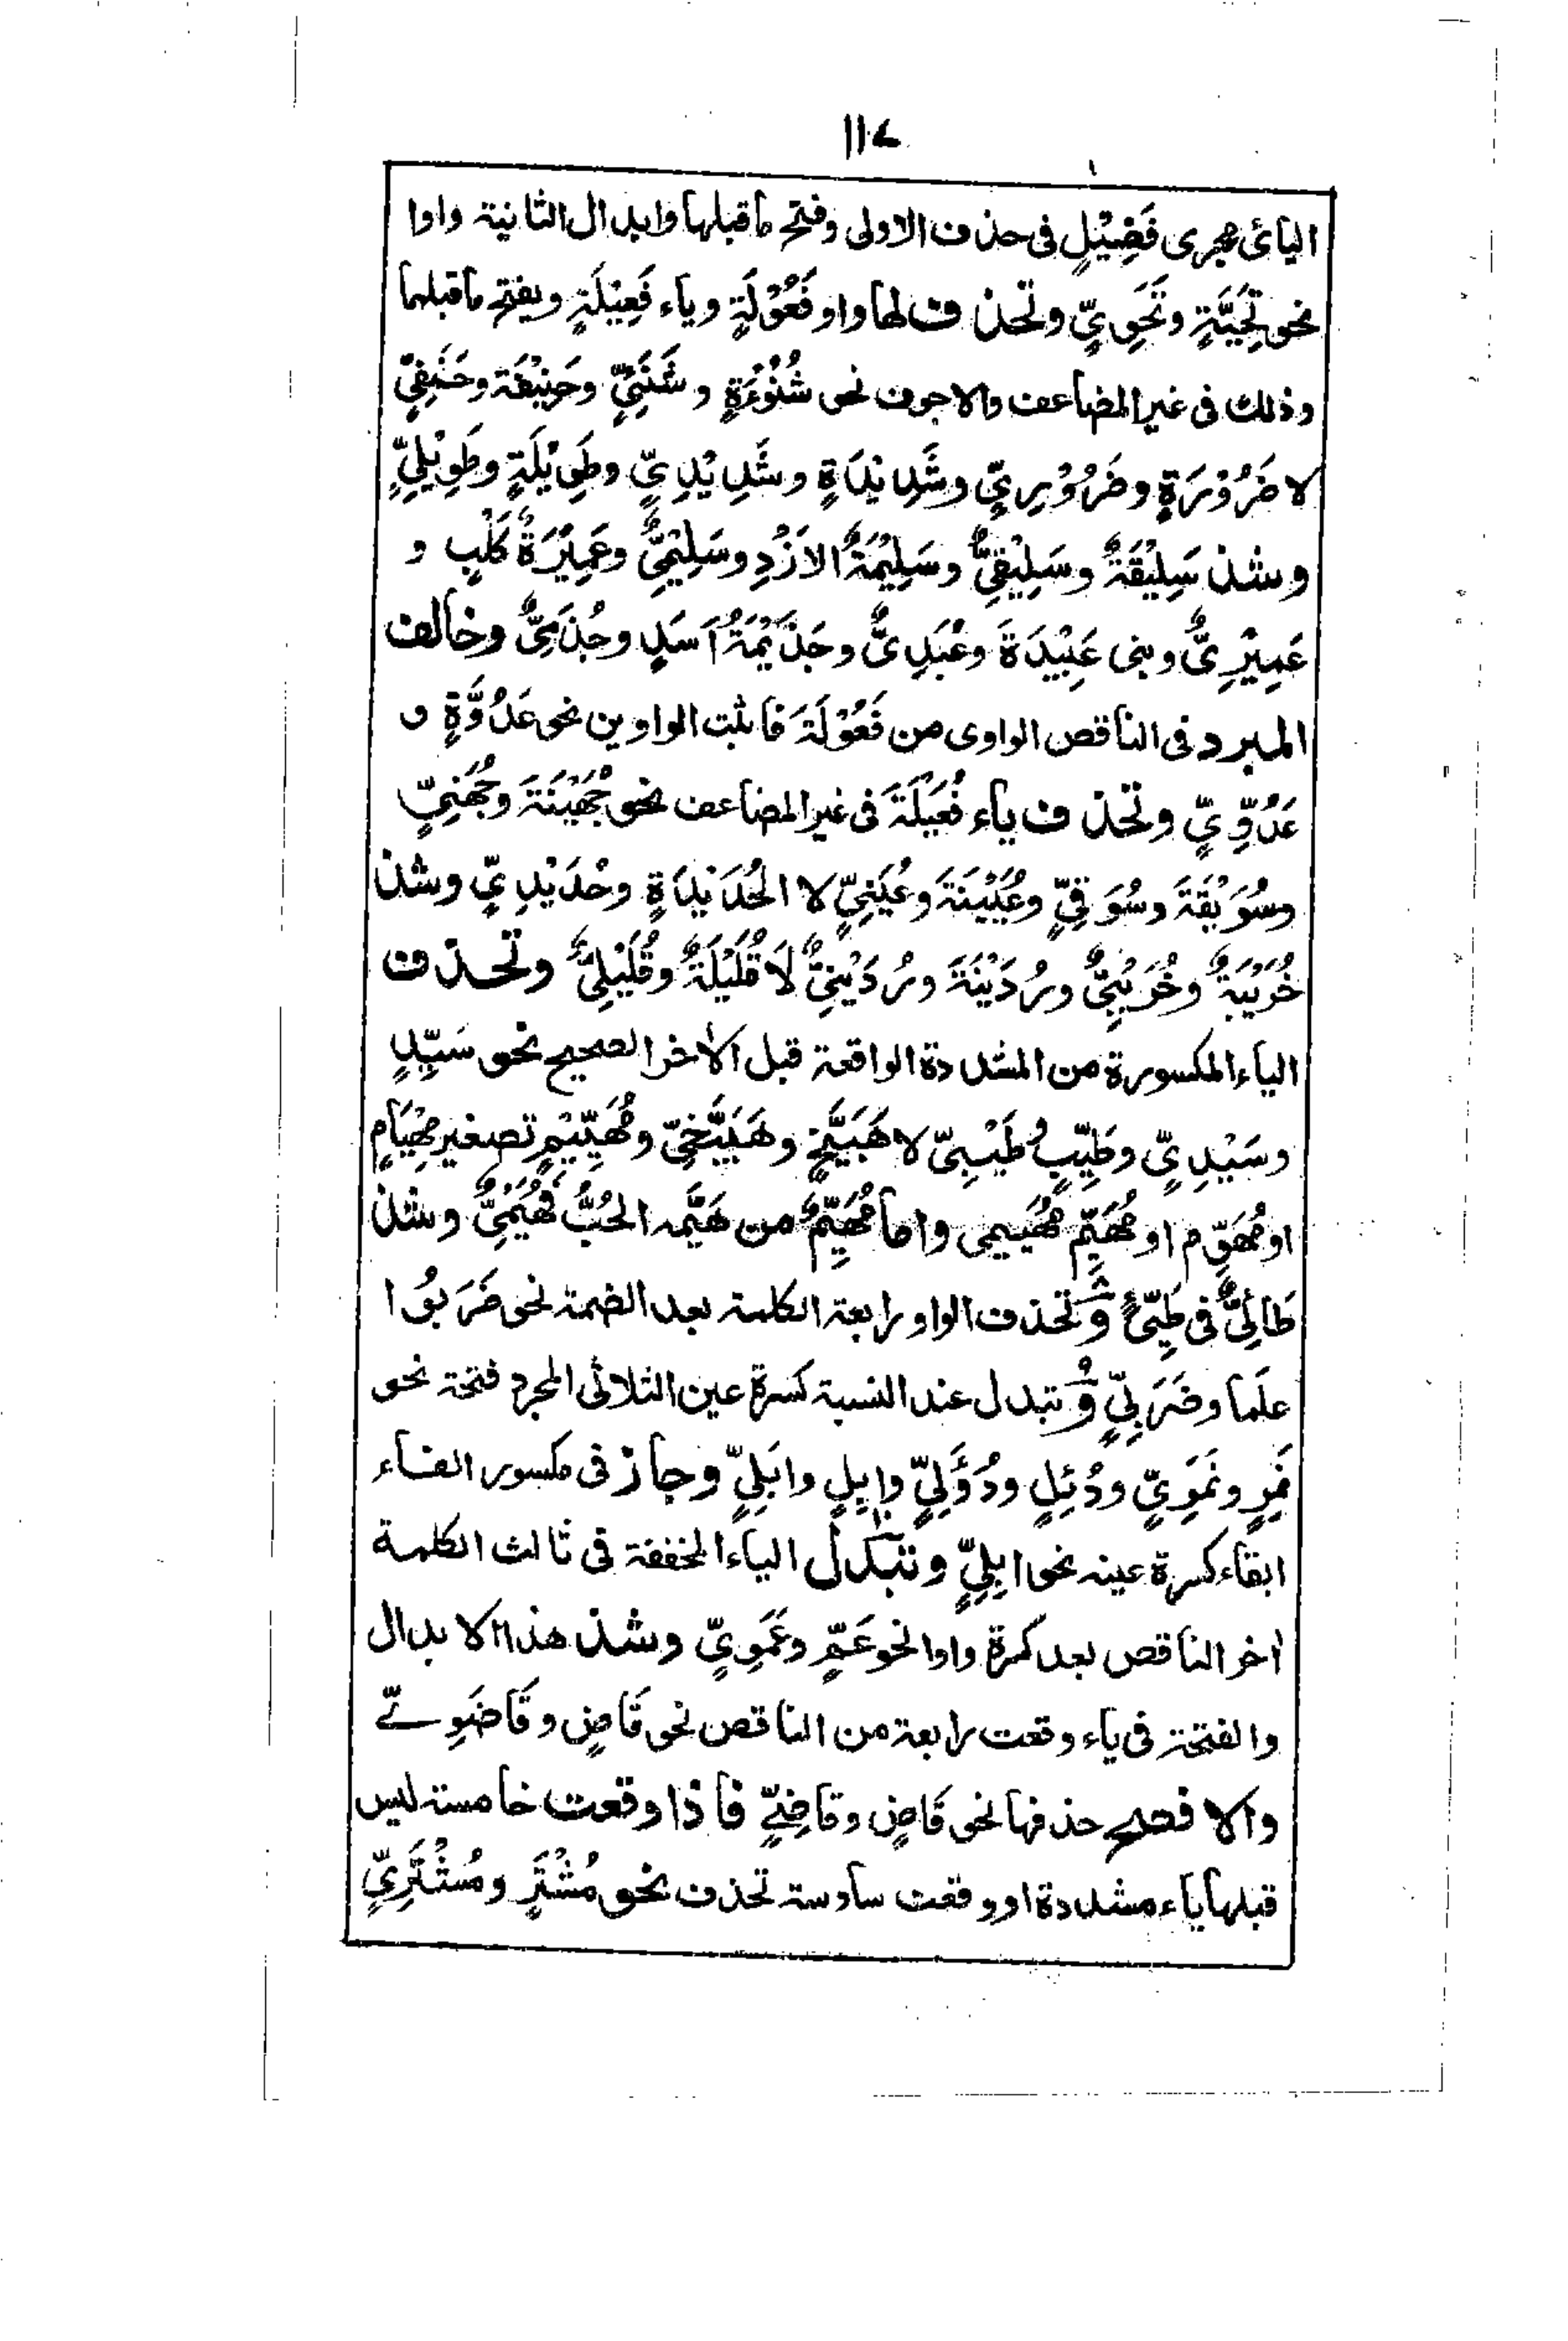 ١١٧
اليائى مجرى فَضِيْلٍ فى حذف الاولى وفتح ما قبلها وابدال الثانية واوا
نحو تَحِيَّةٍ وتَحَوِىٍّ وتحذف لها واو فَعُوْلَةٍ وياء فَعِيْلَةٍ ويفتح ما قبلهما
وذلك فى غير المضاعف والاجوف نحو شُنُوْءَةٍ و شَنَئِىٍّ وحَنِيْفَة وحَنَفِىٍّ
لا ضَرُوْرَةٍ وضَرُوْرِىٍّ وشَدِيْدَةٍ وشَدِيْدِىٍّ وطَوِيْلَةٍ وطَوِيْلِىٍّ
وشذ سَلِيْقَةٌ وسَلِيْقِىٌّ وسَلِيْمَةُ الازْدِ وسَلِيْمِىٌّ وعَمِيْرَةُ كَلْبٍ و
عَمِيْرِىٌّ وبنى عَبِيْدَةَ وعُبَدِىٌّ وجَذِيْمَةُ اَسَدٍ وجُذَمِىٌّ وخالف
المبرد فى الناقص الواوى من فَعُوْلَةَ فاثبت الواوين نحو عَدُوَّةٍ و
عَدُوِّىٍّ وتحذف ياء فُعَيْلَةَ فى غير المضاعف نحو جُهَيْنَةَ وجُهَنِىٍّ
وسُوَيْقَةَ وسُوَقِىٍّ وعُيَيْنَةَ وعُيَنِىٍّ لا الحُدَيْدَةٍ وحُدَيْدِىٍّ وشذ
خُرَيْبَةٌ وخُرَيْبِىٌّ ورُدَيْنَةَ ورُدَيْنِىٌّ لَا قُلَيْلَةٌ وقُلَيْلِىٌّ وتحذف
الياء المكسورة من المشددة الواقعة قبل الاخر الصحيح نحو سَيِّدٍ
وسَيْدِىٍّ وطَيِّبٍ وطَيْبِىٍّ لا هَبَيَّخٍ وهَبَيَّخِىٍّ ومُهَيِّيْمٍ تصغير مِهْيَامٍ
او مُهَوِّم او مُهَيِّمٍ مُهَيِيمى واما مُهَيِّمٌ من هَيَّمه الحُبُّ فَهُيَيْمِىٌّ وشذ
طَائِىٌّ فى طَيِّئٍ وتحذف الواو رابعة الكلمة بعد الضمة نحو ضَرَبُوا
علَما وضَرَبِىٍّ وتبدل عند النسبة كسرة عين الثلاثى المجرد فتحة نحو
نَمِرٍ ونَمَرِىٍّ ودُئِلٍ ودُؤَلِىٍّ وابِلٍ وابَلِىٍّ وجاز فى مكسور الفاء
ابقاء كسرة عينه نحو ابِلِىٍّ وتبدل الياء المخففة فى ثالث الكلمة
اخر الناقص بعد كسرة واوا نحو عَمٍّ وعَمَوِىٍّ وشذ هذا الابدال
والفتحة فى ياء وقعت رابعة من الناقص نحو قَاضٍ وقَاضَوِىٍّ
والافصح حذفها نحو قَاضٍ وقاضِىٍّ فاذا وقعت خامسة ليس
قبلها ياء مشددة او وقعت سادسة تحذف نحو مُشْتَرٍ ومُشْتَرِىٍّ